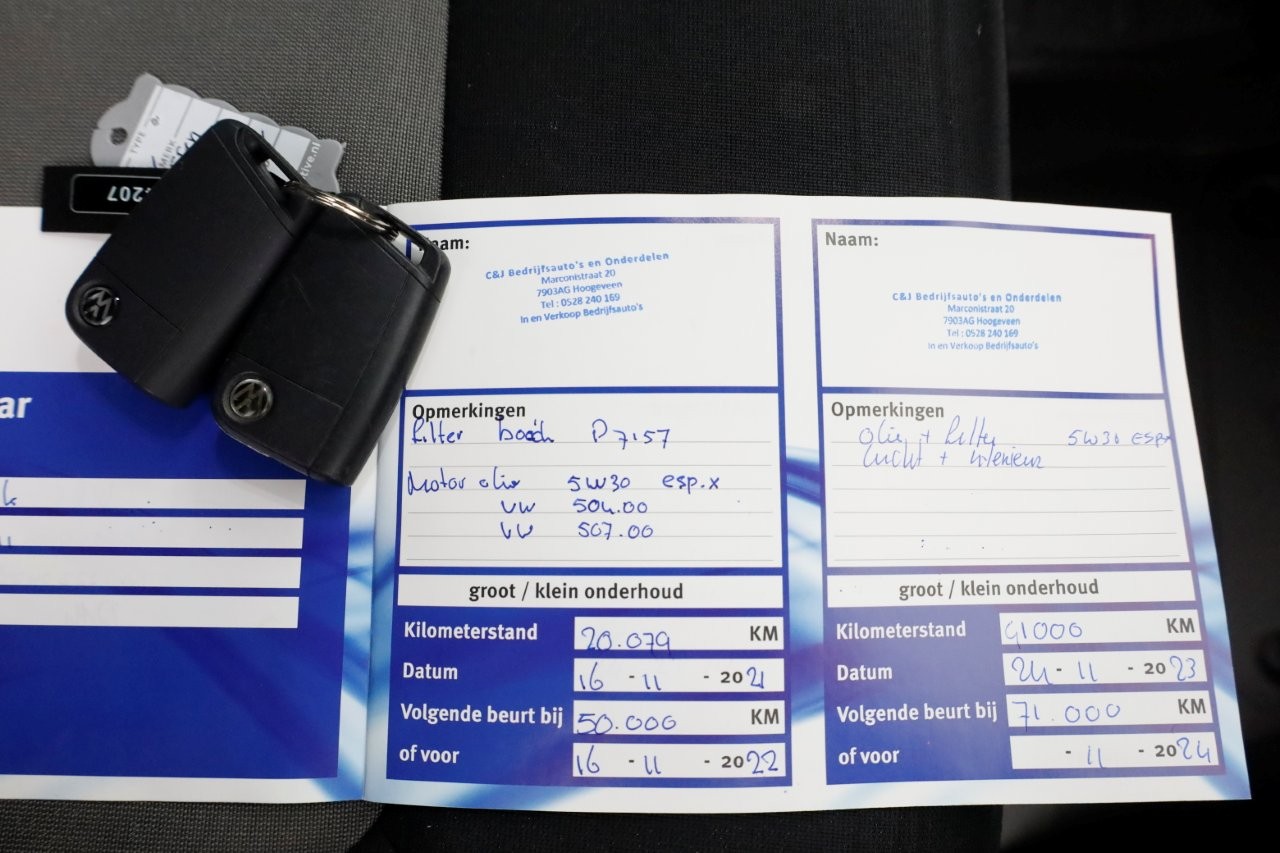 TYPE
MERK
ive.nl
207
ar
aam:
C&J Bedrijfsauto's en Onderdelen
Marconistraat 20
7903AG Hoogeveen
Tel : 0528 240 169
In en Verkoop Bedrijfsauto's
Opmerkingen
filter bosch P7157
Motor olie 5W30 esp.x
VW 504.00
VW 507.00
groot / klein onderhoud
Kilometerstand 20.079 KM
Datum 16 - 11 - 2021
Volgende beurt bij 50.000 KM
of voor 16 - 11 - 2022
Naam:
C&J Bedrijfsauto's en Onderdelen
Marconistraat 20
7903AG Hoogeveen
Tel : 0528 240 169
In en Verkoop Bedrijfsauto's
Opmerkingen
olie + filter 5W30 esp
lucht + interieur
groot / klein onderhoud
Kilometerstand 41000 KM
Datum 24 - 11 - 2023
Volgende beurt bij 71.000 KM
of voor - 11 - 2024